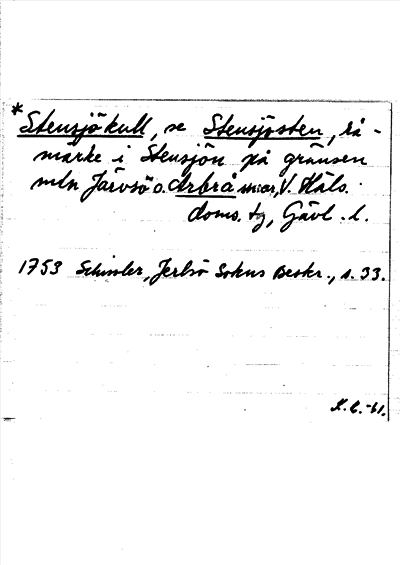 * Stensjökull, se Stensjösten, rå-
märke i Stensjön på gränsen
mln Järvsö o. Arbrå snar, V. Häls.
doms. tg, Gävl. l.
1753 Schissler, Jerlsö Sokns Beskr., s. 33.
K. L. -61.